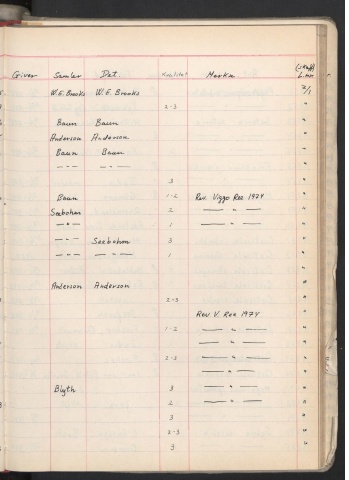 Giver Samler Det. Kvalitet Merkn (skuff) L.nr.
W.E. Brooks W.E. Brooks 2/1
2-3 "
Baun Baun "
Anderson Anderson "
Baun Baun "
— " — — " — "
3 "
Baun 1-2 Rev. Viggo Ree 1974 "
Seebohm 2 — " — "
— " — 1 — " — "
— " — Seebohm 3 "
— " — — " — 1 "
"
Anderson Anderson "
2-3 "
Rev. V. Ree 1974 "
1-2 — " — "
— " — "
2-3 — " — "
— " — "
Blyth 3 — " — "
2 — " — "
3 "
2-3 "
3 "